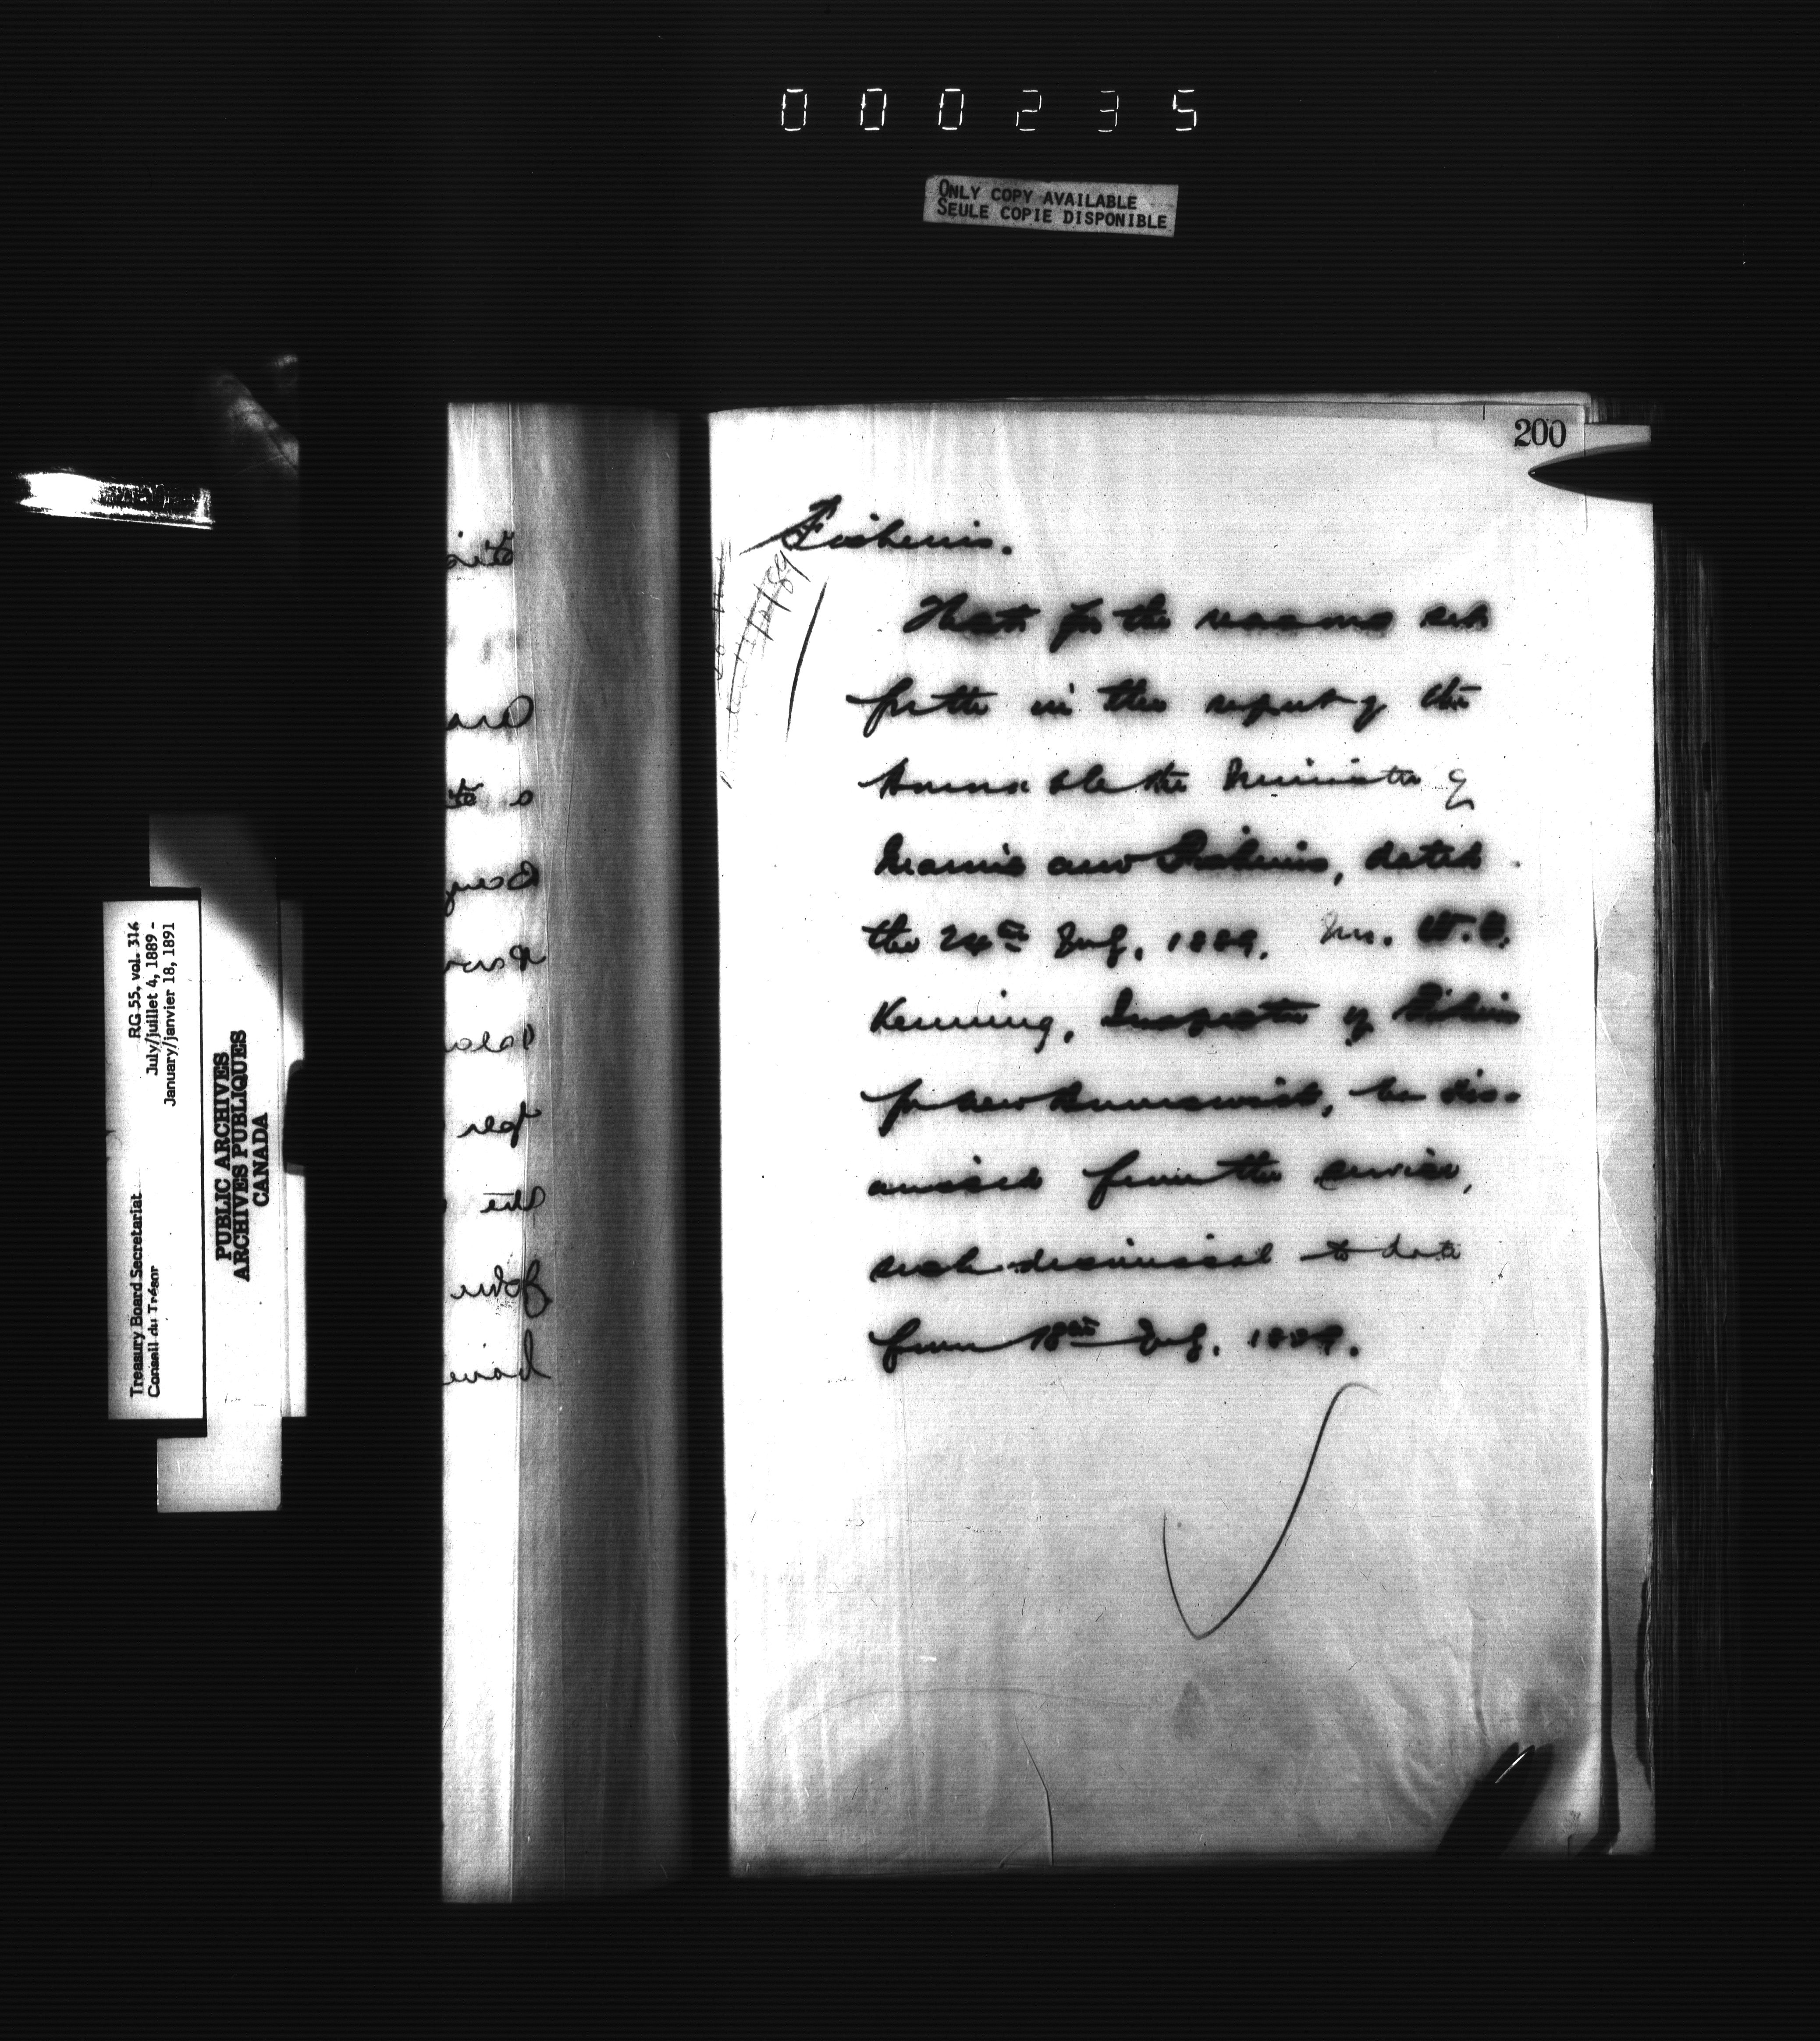 000235
ONLY COPY AVAILABLE
SEULE COPIE DISPONIBLE
200
Fisheries.
That for the reasons set
forth in the report of the
Honorable the Minister of
Marine and Fisheries, dated
the 24th July, 1889, Mr. W.
Kenning, Inspector of Fisheries
for New Brunswick, be dis-
missed from the service,
such dismissal to date
from 18th July, 1889.
RG 55, vol. 316
July/juillet 4, 1889 -
January/janvier 18, 1891
Treasury Board Secretariat
Conseil du Trésor
PUBLIC ARCHIVES
ARCHIVES PUBLIQUES
CANADA